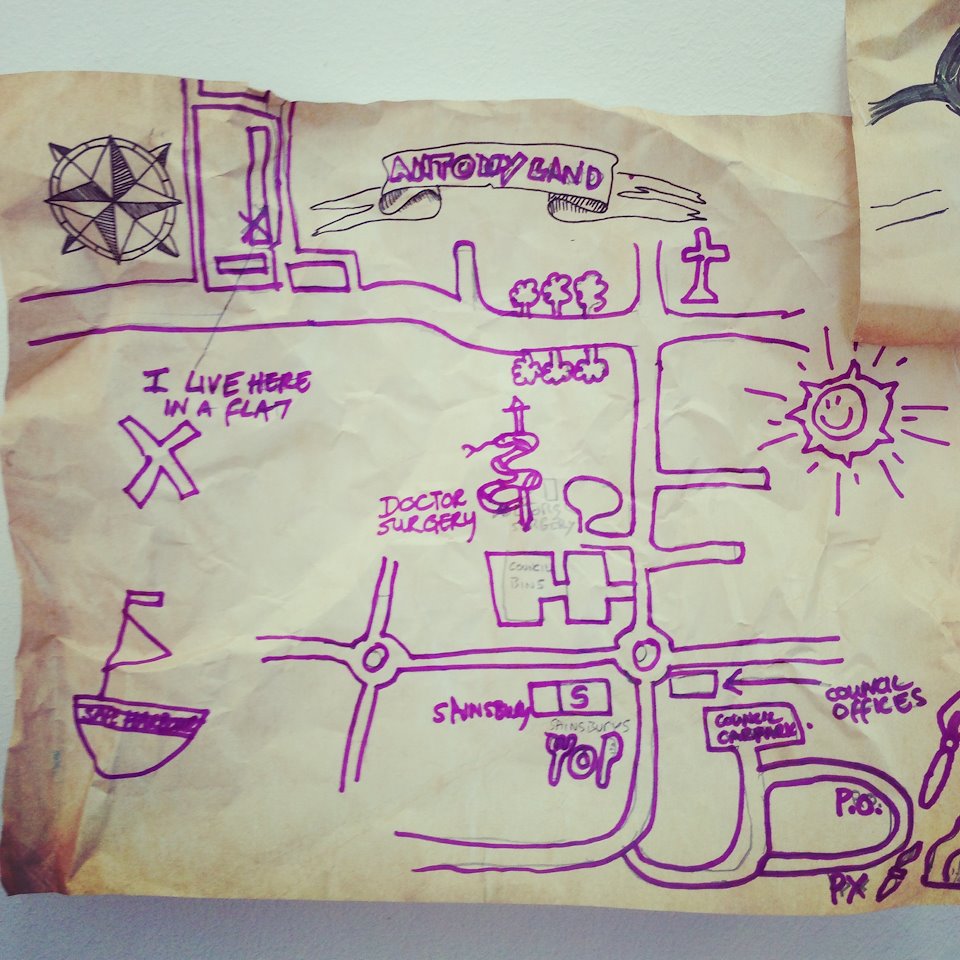 ANTONY LAND
I LIVE HERE
IN A FLAT
DOCTOR
SURGERY
SURGERY
COUNCIL
BINS
SAINSBURY
S
SAINSBURYS
TOP
COUNCIL
OFFICES
COUNCIL
CARPARK.
P.O.